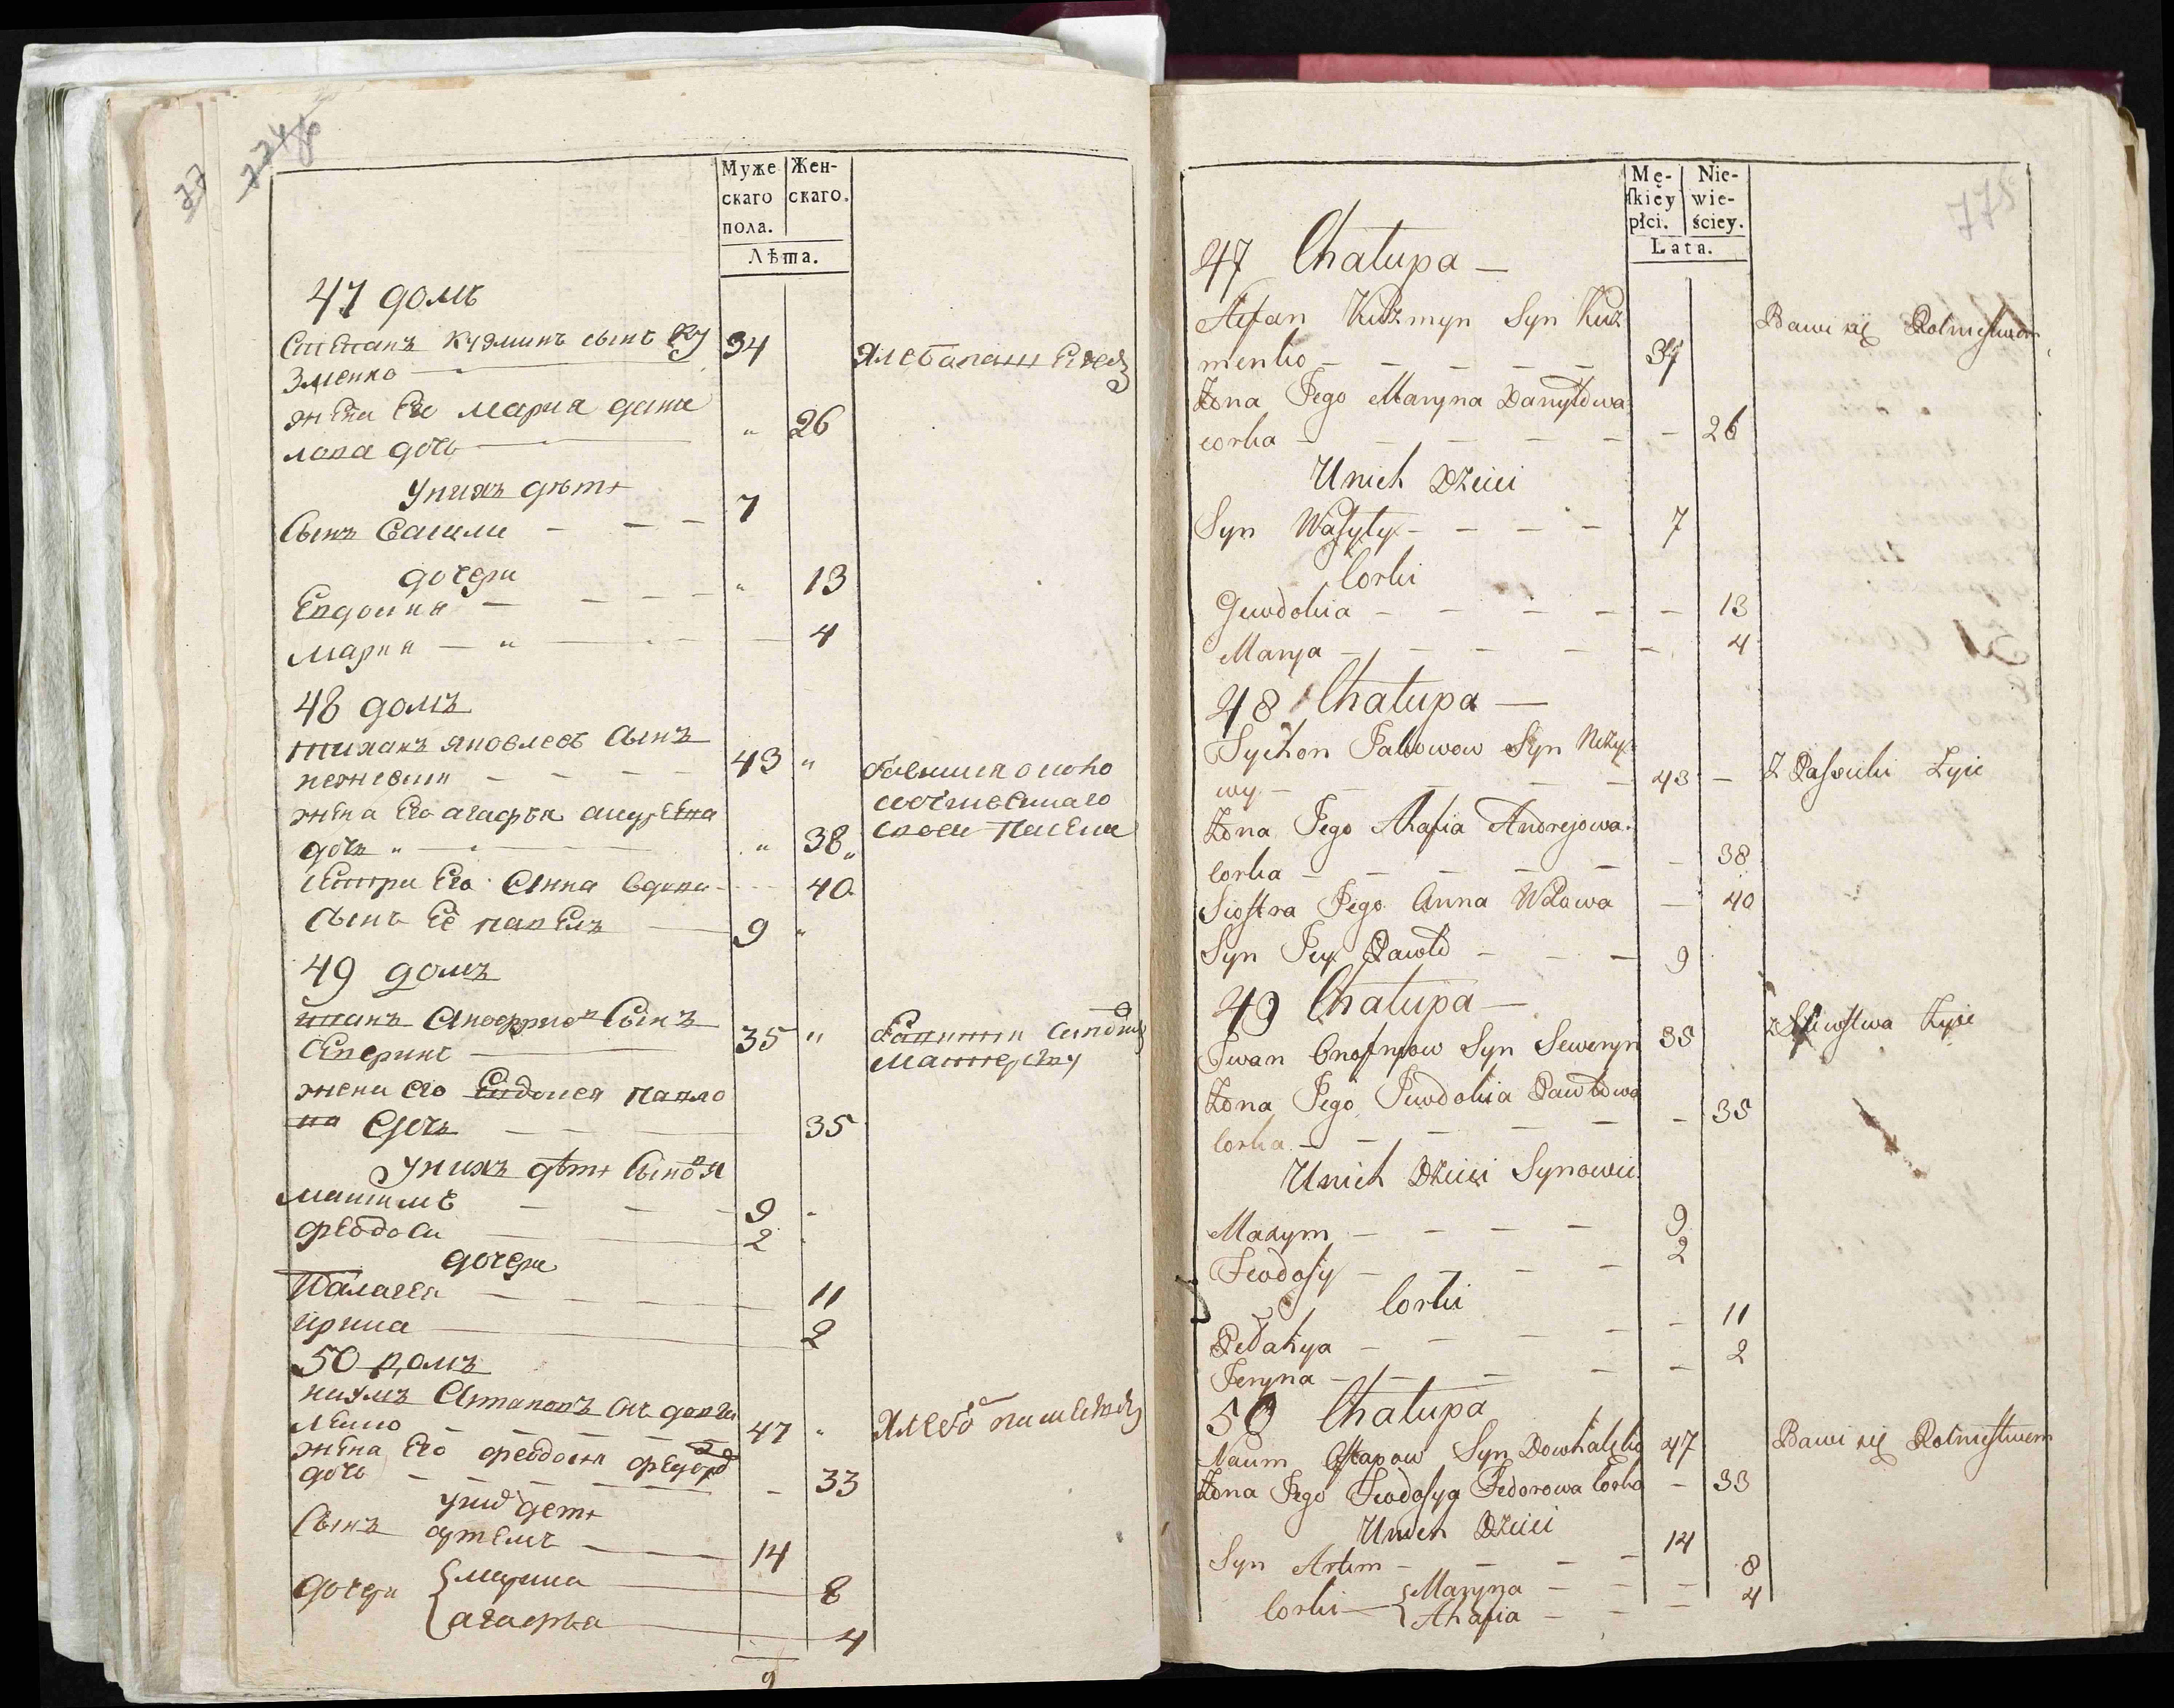 77
774 об
Муже
скаго
пола.
Жен-
скаго.
Лѣта.
47 домъ
Степанъ Кузминъ сынъ Ку 34
зменко
жена Его Мария Дани
лова дочь " 26
У нихъ дѣти
Сынъ Василь 7
дочери
Евдокия " 13
Мария 4
48 домъ
Тихонъ Яковлевъ Сынъ
43 "
жена Его агафья андреева
дочь " 38
сестра Его Анна вдова 40
Сынъ Её Павелъ 9 "
49 домъ
Иванъ Аноффриов Сынъ
Северинъ 35 "
жена его Евдокея Павло
ва Дочь 35
У нихъ дѣти Сыновя
Максимъ 9
феодоси 2
дочери
Палагея 11
ирина 2
50 домъ
Наумъ Астаповъ Снъ довга
левко 47 "
жена Его феодосия федоро
дочь 33
у них дети
Сынъ артемъ 14
дочери { марина 8
агафья 4
9
775
Mę-
ſkiey
płci.
Nie-
wie-
ściey.
Lata.
47 Chałupa
Stefan Kuźmyn Syn Kuź Bawi się Rolnictwem
menko 34
Żona Jego Maryna Danyłowa
corka 26
U nich Dzieci
Syn Wasyly 7
Corki
Jewdokia 13
Marya 4
48 Chałupa
Tychon Jakowow Syn Neży
wy 43 Z Pasieki Żyie
Żona Jego Ahafia Andrejowa
Corka 38
Siostra Jego Anna Wdowa 40
Syn Jey Pawło 9
49 Chałupa
Iwan Onofryow Syn Seweryn 35 Żyie
Żona Jego Jewdokia Pawłowa
Corka 35
U nich Dzieci Synowie
Maxym 9
Feodosy 2
Corki
Pelahya 11
Jeryna 2
50 Chałupa
Naum Ostapow Syn Dowhalenko 47 Bawi się Rolnictwem
Żona Jego Feodosya Fedorowa Corka 33
U nich Dzieci
Syn Artem 14
Corki { Maryna 8
Ahafia 4